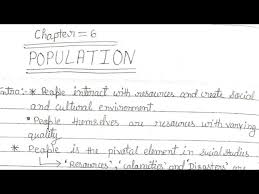 Chapter = 6
POPULATION
Intro:- * People interact with resources and create social
and cultural environment.
• People themselves are resources with varying
quality
* People is the pivotal element in social studies
↳ 'Resources', 'calamities' and 'Disasters' are